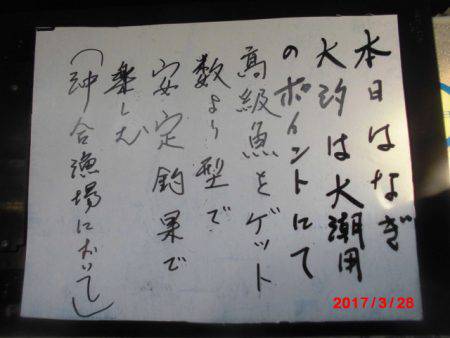 本日はなぎ
大汐は大潮用
のポイントにて
高級魚をゲット
数より型で
安定釣果で
楽しむ
(沖合漁場において)
2017/3/28